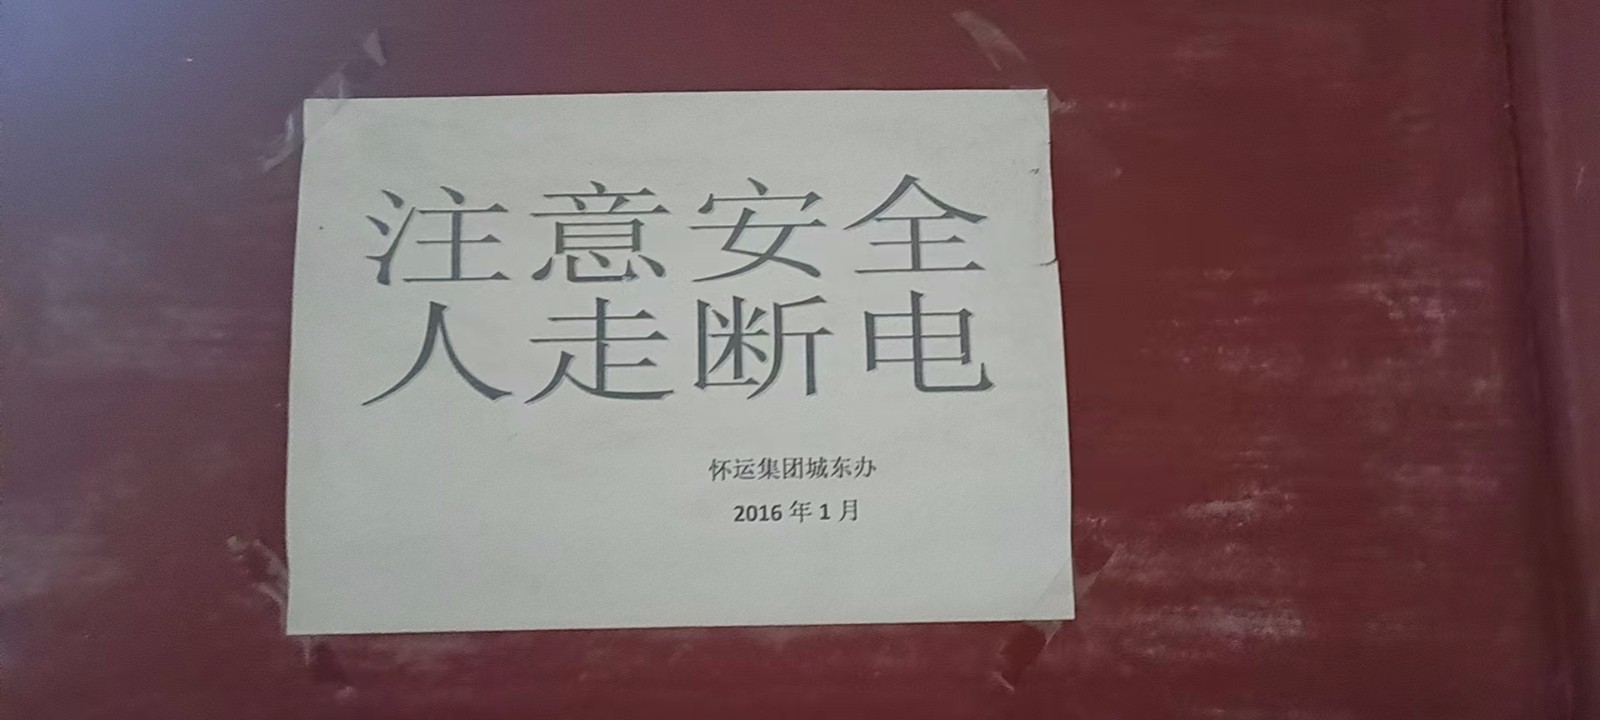 注意安全
人走断电
怀运集团城东办
2016 年 1 月